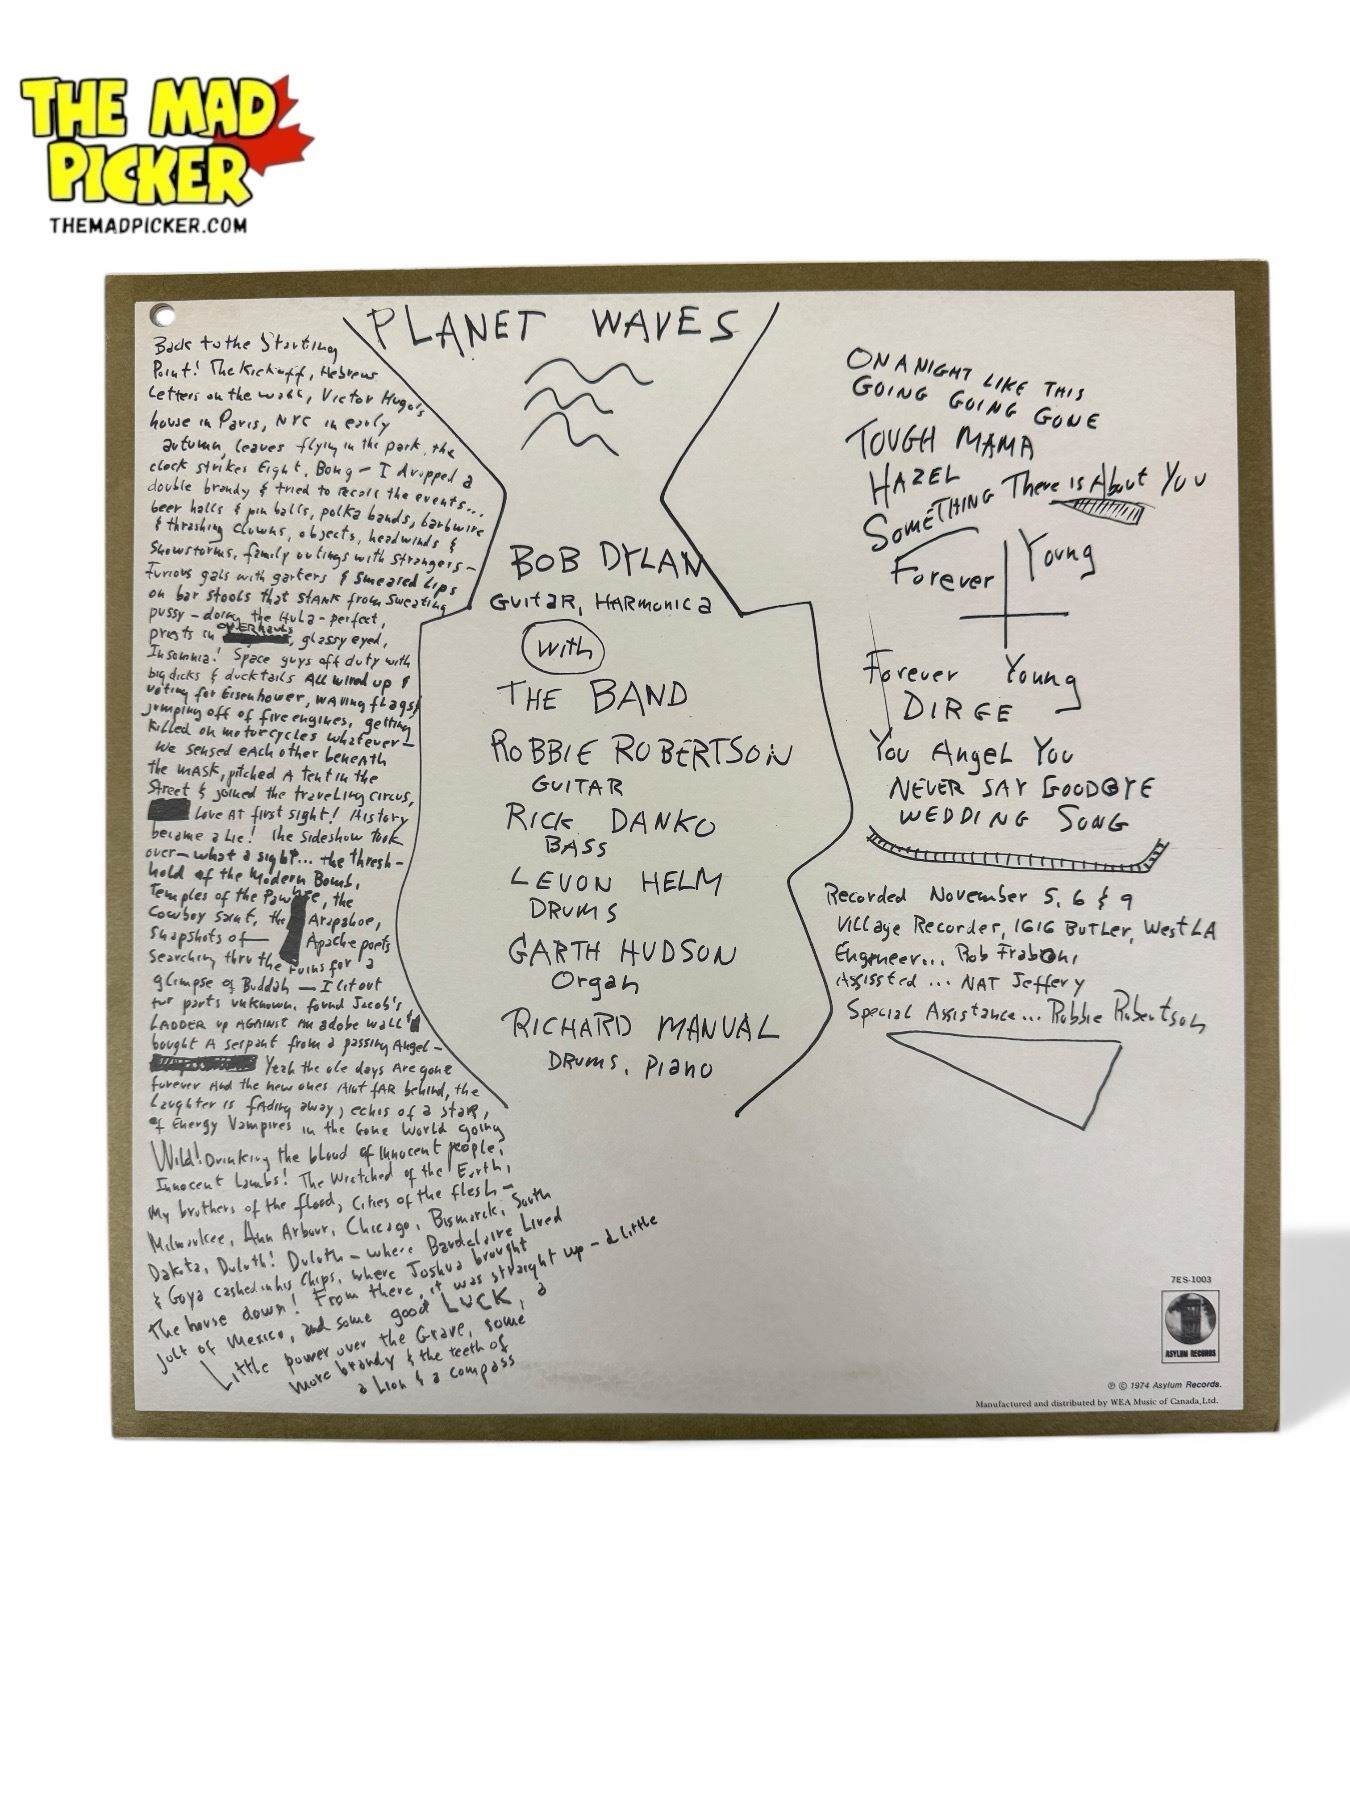 THE MAD
PICKER
THEMADPICKER.COM
PLANET WAVES
Back to the Starting
Point! The Kickoff, Hebrew
Letters on the wall, Victor Hugo's
house in Paris, NYC in early
autumn, leaves flying in the park, the
clock strikes Eight, Bong - I dropped a
double brandy & tried to recall the events...
beer halls & pin balls, polka bands, barbwire
& thrashing clowns, objects, headwinds &
Snowstorms, family outings with Strangers -
Furious gals with garters & Smeared Lips
on bar stools that stank from sweating
pussy - doing the Hula - perfect,
priests in OVERhauls, glassy eyed,
Insomnia! Space guys off duty with
big dicks & ducktails All wired up &
voting for Eisenhower, waving flags &
jumping off of fire engines, getting
killed on motorcycles whatever -
We sensed each other beneath
the mask, pitched A tent in the
Street & joined the traveling circus,
Love At first sight! History
became a Lie! the Sideshow took
over - what a sight... the thresh-
hold of the Modern Bomb,
Temples of the Pawnee, the
Cowboy saint, the Arapahoe,
Snapshots of Apache poets
searching thru the ruins for a
glimpse of Buddah - I lit out
for parts unknown, found Jacob's
LADDER up AGAINST an adobe wall &
bought A serpant from a passing Angel -
Yeah the ole days Are gone
forever And the new ones Aint fAR behind, the
Laughter is fading away, echos of a star,
of Energy Vampires in the Gone World going
Wild! Drinking the blood of innocent people,
Innocent Lambs! The Wretched of the Earth,
My brothers of the flood, Cities of the flesh -
Milwaukee, Ann Arbour, Chicago, Bismarck, South
Dakota, Duluth! Duluth - where Baudelaire Lived
& Goya cashed in his Chips, where Joshua brought
the house down! From there, it was straight up - a little
jolt of Mexico, and some good LUCK, a
Little power over the Grave, some
more brandy & the teeth of
a Lion & a compass
BOB DYLAN
GUITAR, HARMONICA
with
THE BAND
ROBBIE ROBERTSON
GUITAR
RICK DANKO
BASS
LEVON HELM
DRUMS
GARTH HUDSON
Organ
RICHARD MANUAL
DRUMS, PIANO
ON A NIGHT LIKE THIS
GOING GOING GONE
TOUGH MAMA
HAZEL
SOMETHING There is About You
Forever Young
Forever Young
DIRGE
You Angel You
NEVER SAY GOODBYE
WEDDING SONG
Recorded November 5, 6 & 9
Village Recorder, 1616 BUTLER, West LA
Engineer... Rob Fraboni
Assissted ... NAT Jeffery
Special Assistance... Robbie Robertson
7ES-1003
ASYLUM RECORDS
℗ © 1974 Asylum Records.
Manufactured and distributed by WEA Music of Canada, Ltd.